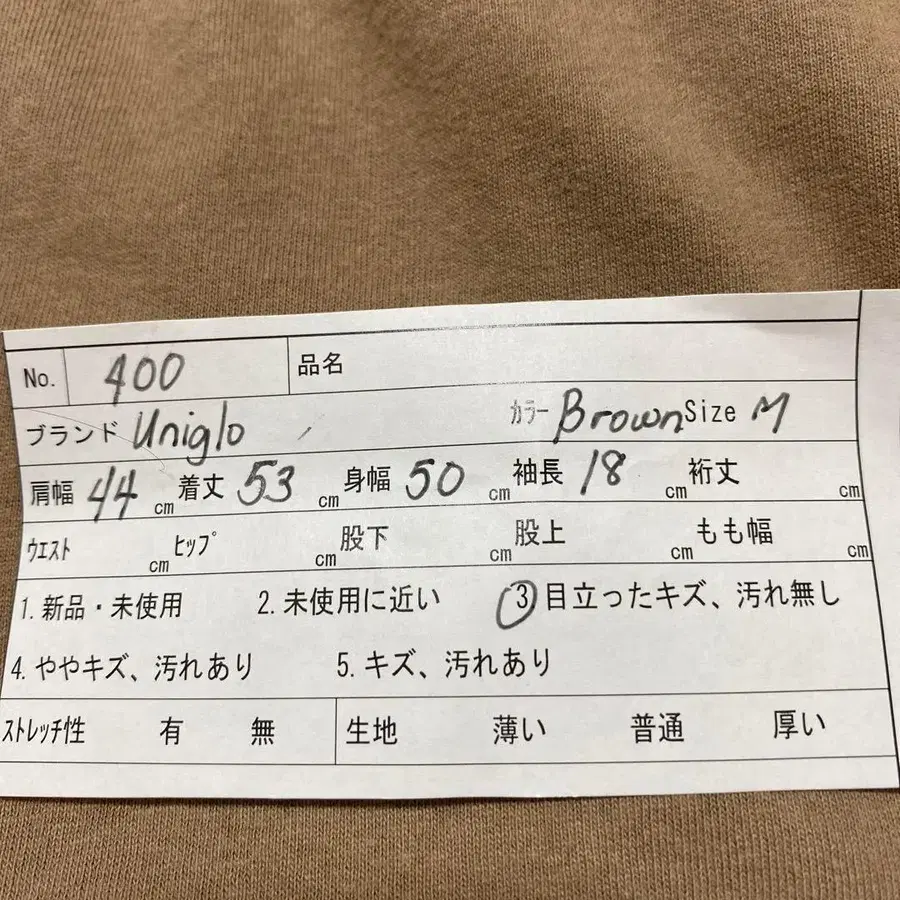 No. 400 品名
ブランド Uniglo カラー Brown Size M
肩幅 44 cm 着丈 53 cm 身幅 50 cm 袖長 18 cm 裄丈 cm
ウエスト cm ヒップ cm 股下 cm 股上 cm もも幅 cm
1. 新品・未使用 2. 未使用に近い 3 目立ったキズ、汚れ無し
4. ややキズ、汚れあり 5. キズ、汚れあり
ストレッチ性 有 無 生地 薄い 普通 厚い